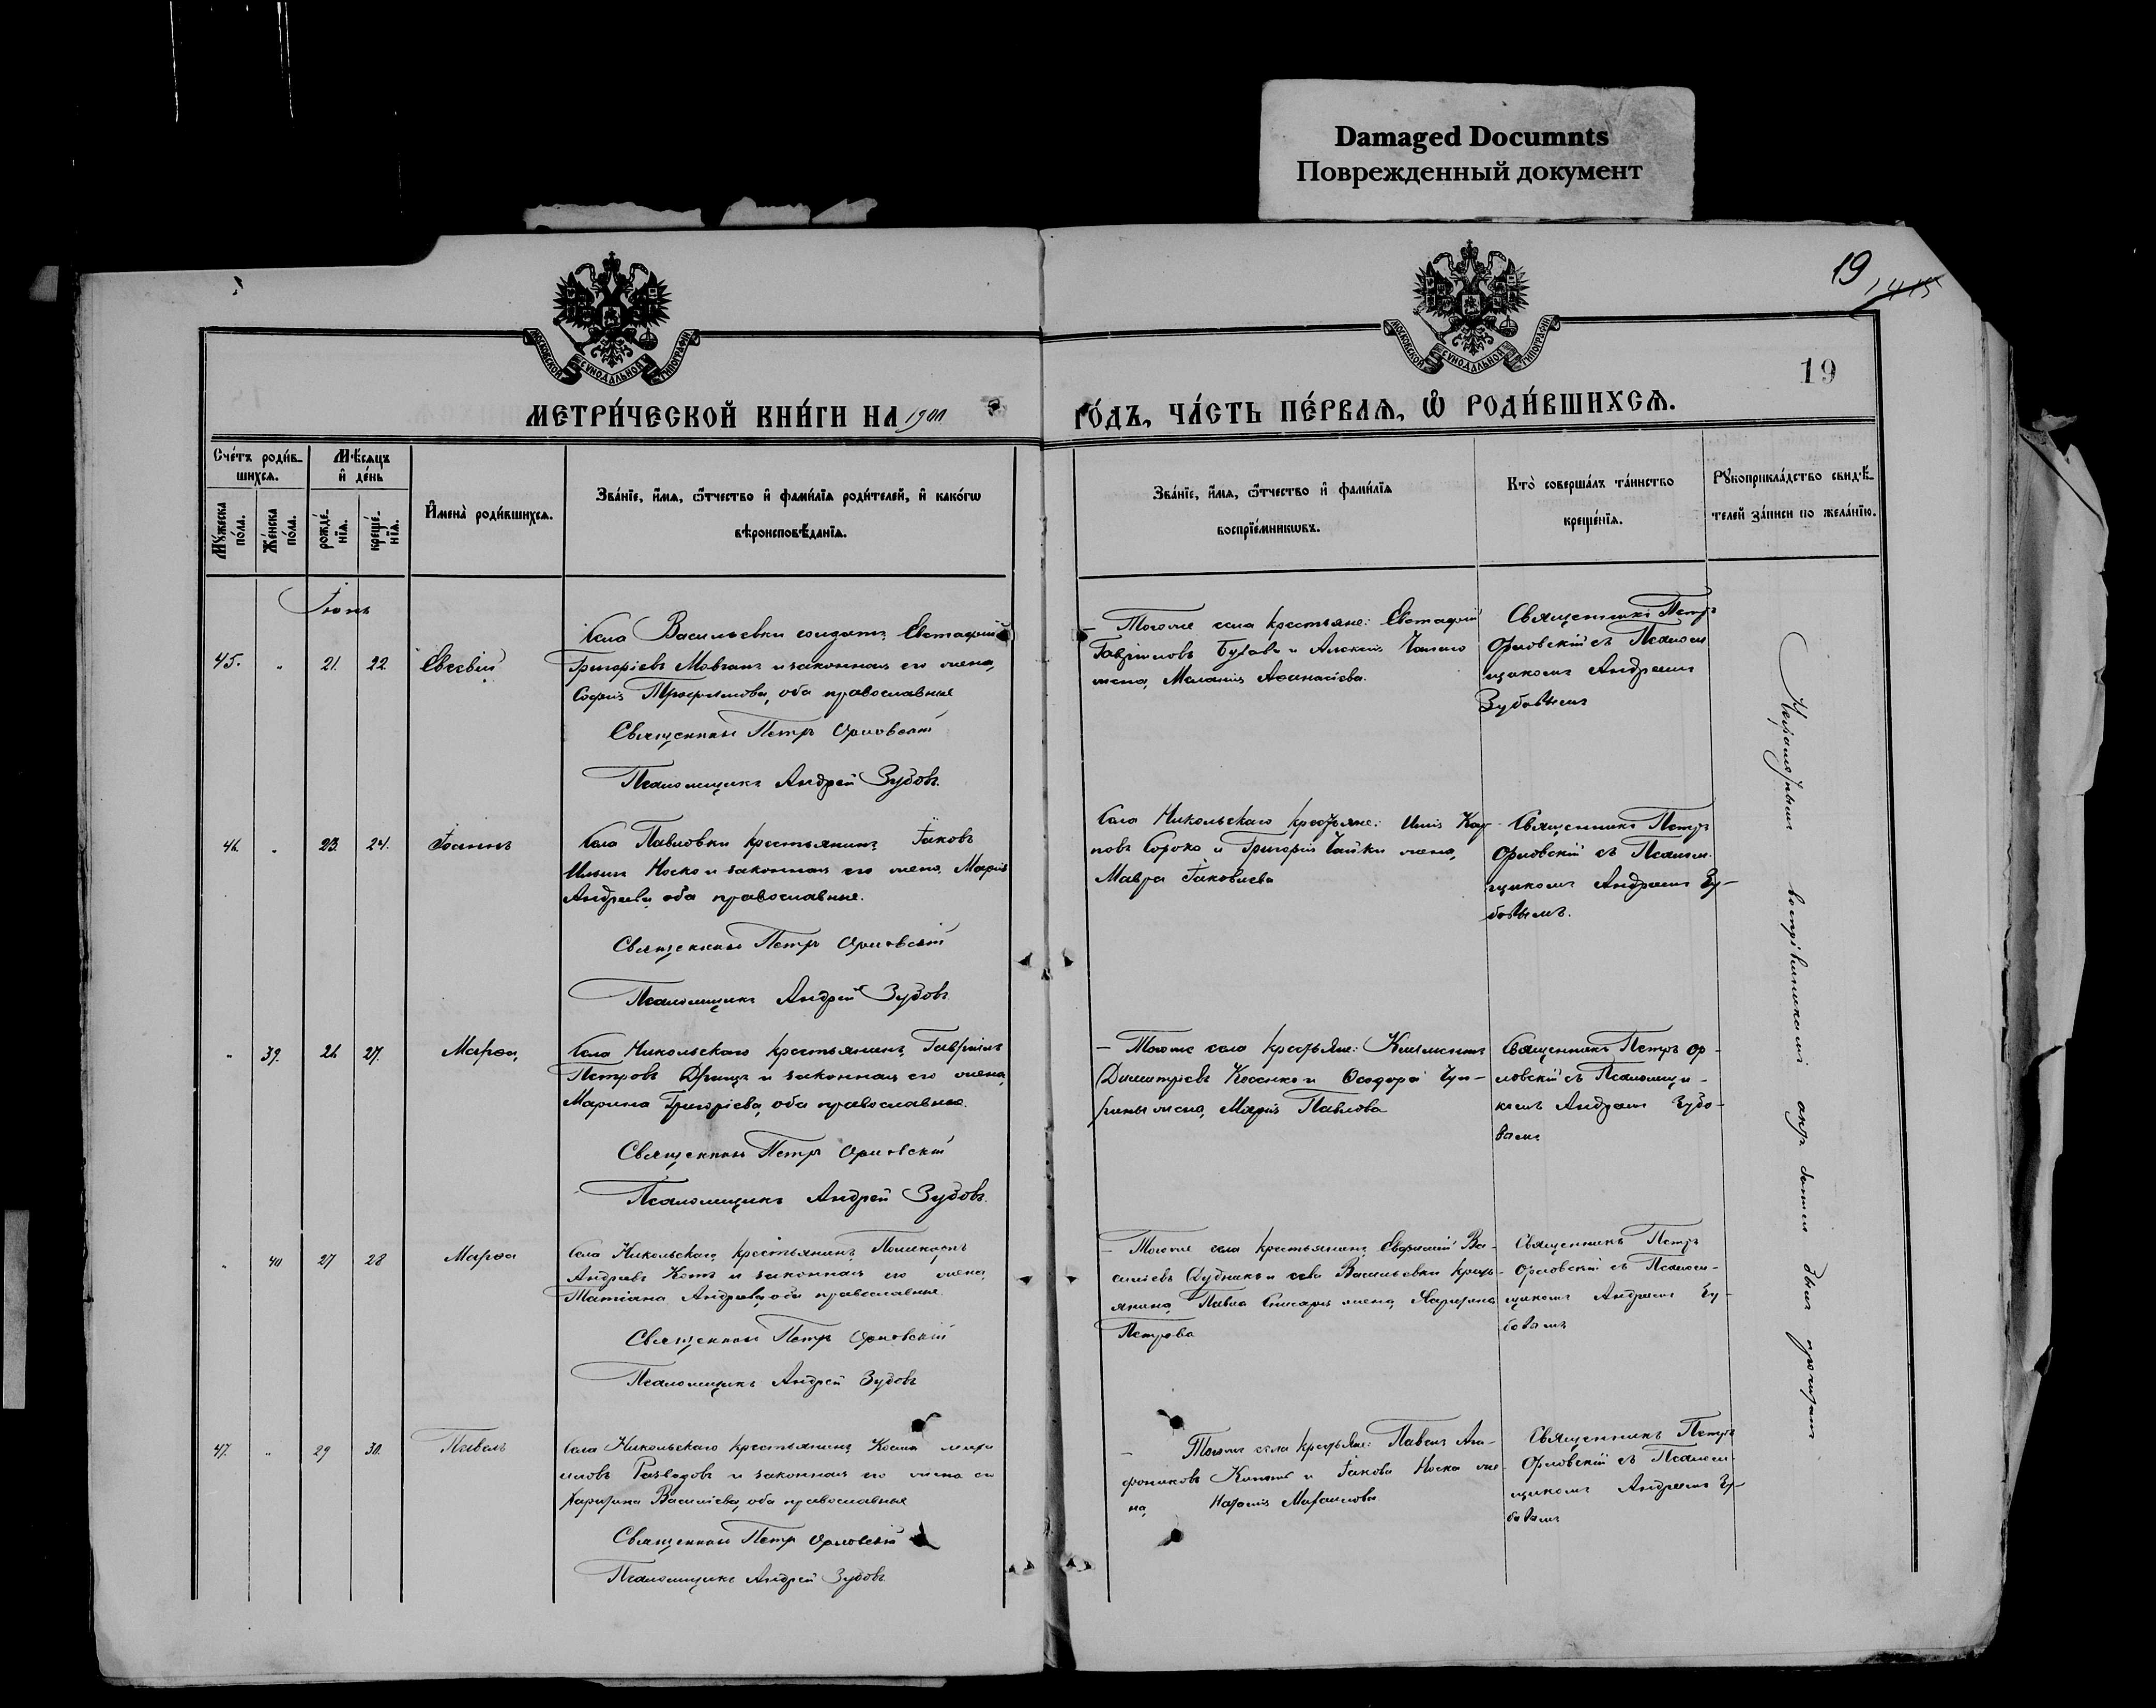 Damaged Documnts
Поврежденный документ
19
1415
МОСКОВСКОЙ СѴНОДАЛЬНОЙ ТИПОГРАФІИ
МОСКОВСКОЙ СѴНОДАЛЬНОЙ ТИПОГРАФІИ
19
МЕТРИ́ЧЕСКОЙ КНИ́ГИ НА 1901
ГО́ДЪ, ЧА́СТЬ ПЕ́РВАѦ, Ѽ РОДИ́ВШИХСѦ.
Сче́тъ роди́в-
шихсѧ.
Мѣ́сѧцъ
и҆ де́нь
Мꙋ́жеска
по́ла.
Же́нска
по́ла.
рожде́-
нїѧ.
креще́-
нїѧ.
И҆мена̀ роди́вшихсѧ.
Зва́нїе, и҆́мѧ, ѻ҆́тчество и҆ фами́лїѧ роди́телей, и҆ како́гѡ
вѣроисповѣ́данїѧ.
Зва́нїе, и҆́мѧ, ѻ҆́тчество и҆ фами́лїѧ
воспрїе́мникѡвъ.
Кто̀ соверша́лъ та́инство
креще́нїѧ.
Рꙋкоприкла́дство свидѣ́-
телей за́писи по жела́нїю.
Іюнь
45. " 21. 22. Евсевій
Села Васильевки солдатъ Евстафій
Григоріевъ Мовчанъ и законная его жена,
Софія Трофимова, оба православные
Священникъ Петръ Орловскій
Псаломщикъ Андрей Зубовъ.
Тогоже села крестьяне: Евстафій
Гавріиловъ и Алексія
жена, Меланія Афанасіева.
Священникъ Петръ
Орловскій съ Псалом
щикомъ Андреемъ
Зубовымъ
46. " 23. 24. Іоаннъ
Села Павловки крестьянинъ Іаковъ
Ильинъ Носко и законная его жена, Марія
Андреева, оба православные.
Священникъ Петръ Орловскій
Псаломщикъ Андрей Зубовъ
Села Никольскаго крестьяне: Илія Кар-
повъ Сорока и Григорія Чайки жена,
Мавра Іаковлева
Священникъ Петръ
Орловскій съ Псалом-
щикомъ Андреемъ Зу-
бовымъ.
" 39. 26. 27. Марѳа,
Села Никольскаго крестьянинъ, Гавріилъ
Петровъ и законная его жена,
Марина Григоріева, оба православные.
Священникъ Петръ Орловскій
Псаломщикъ Андрей Зубовъ.
Тогоже села крестьяне: Климентъ
Димитріевъ Косенко и Ѳеодора
жена, Марія Павлова
Священникъ Петръ Ор-
ловскій съ Псаломщи-
комъ Андреемъ Зубо-
вымъ
" 40 27 28 Марѳа
Села Никольскаго, крестьянинъ, Поликарпъ
Андреевъ Котъ и законная его жена,
Татіана Андреева, оба православные.
Священникъ Петръ Орловскій
Псаломщикъ Андрей Зубовъ
Тогоже села крестьянинъ, Ва-
силіевъ Дудникъ и села Васильевки кресть-
янина, Павла жена,
Петрова
Священникъ Петръ
Орловскій съ Псалом-
щикомъ Андреемъ Зу-
бовымъ
47. " 29 30. Павелъ
Села Никольскаго крестьянинъ, Косма
и законная его жена
Василіева, оба православные
Священникъ Петръ Орловскій
Псаломщикъ Андрей Зубовъ
Тогоже села крестьяне: Павелъ
и Іакова Носка же-
на,
Священникъ Петръ
Орловскій съ Псалом-
щикомъ Андреемъ Зу-
бовымъ
воспріемникамъ актъ былъ прочитанъ